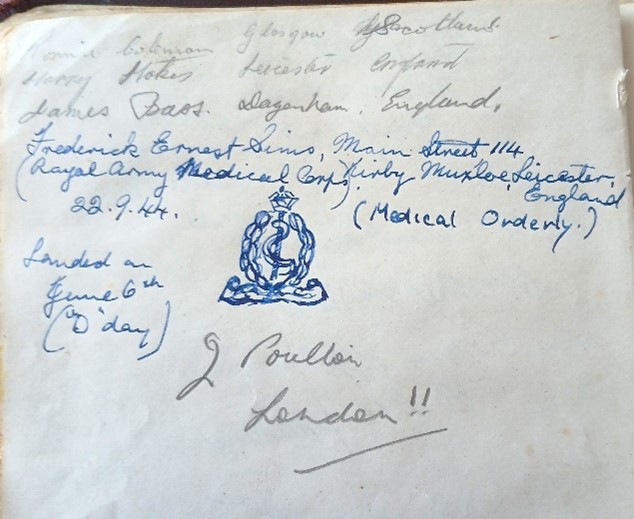 Glasgow Scotland
Harry Stokes Leicester England
James Bass. Dagenham. England.
Frederick Ernest Sims, Main Street 114
(Royal Army Medical Corps) Kirby Muxloe, Leicester,
England
22.9.44.
(Medical Orderly.)
Landed on
June 6th
("D" day)
J Poulton
London!!